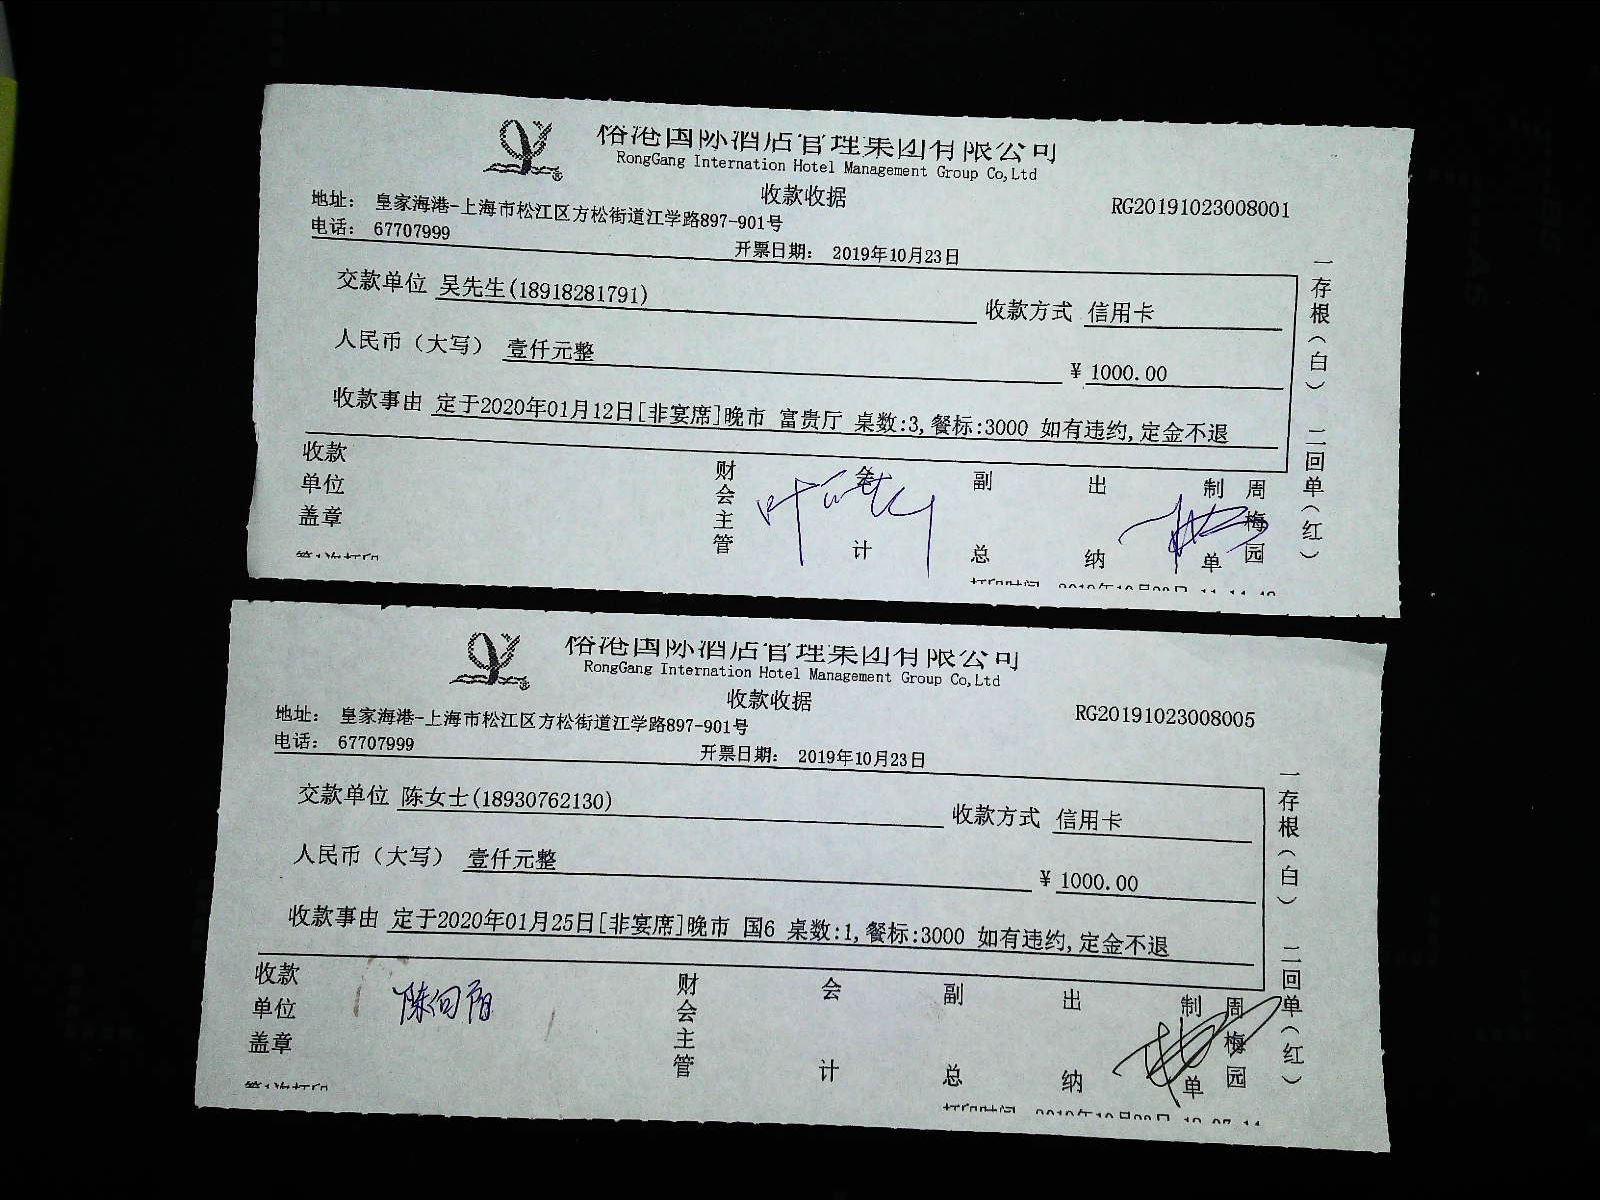 榕港国际酒店管理集团有限公司
RongGang Internation Hotel Management Group Co,Ltd
收款收据
RG20191023008001
地址： 皇家海港-上海市松江区方松街道江学路897-901号
电话： 67707999
开票日期： 2019年10月23日
交款单位 吴先生(18918281791)
收款方式 信用卡
人民币（大写） 壹仟元整
¥ 1000.00
收款事由 定于2020年01月12日[非宴席]晚市 富贵厅 桌数:3,餐标:3000 如有违约,定金不退
一存根（白） 二回单（红）
收款单位盖章
财会主管
会计
副总
出纳
制单
周梅园
第1次打印
打印时间
榕港国际酒店管理集团有限公司
RongGang Internation Hotel Management Group Co,Ltd
收款收据
RG20191023008005
地址： 皇家海港-上海市松江区方松街道江学路897-901号
电话： 67707999
开票日期： 2019年10月23日
交款单位 陈女士(18930762130)
收款方式 信用卡
人民币（大写） 壹仟元整
¥ 1000.00
收款事由 定于2020年01月25日[非宴席]晚市 国6 桌数:1,餐标:3000 如有违约,定金不退
一存根（白） 二回单（红）
收款单位盖章
财会主管
会计
副总
出纳
制单
周梅园
第1次打印
打印时间